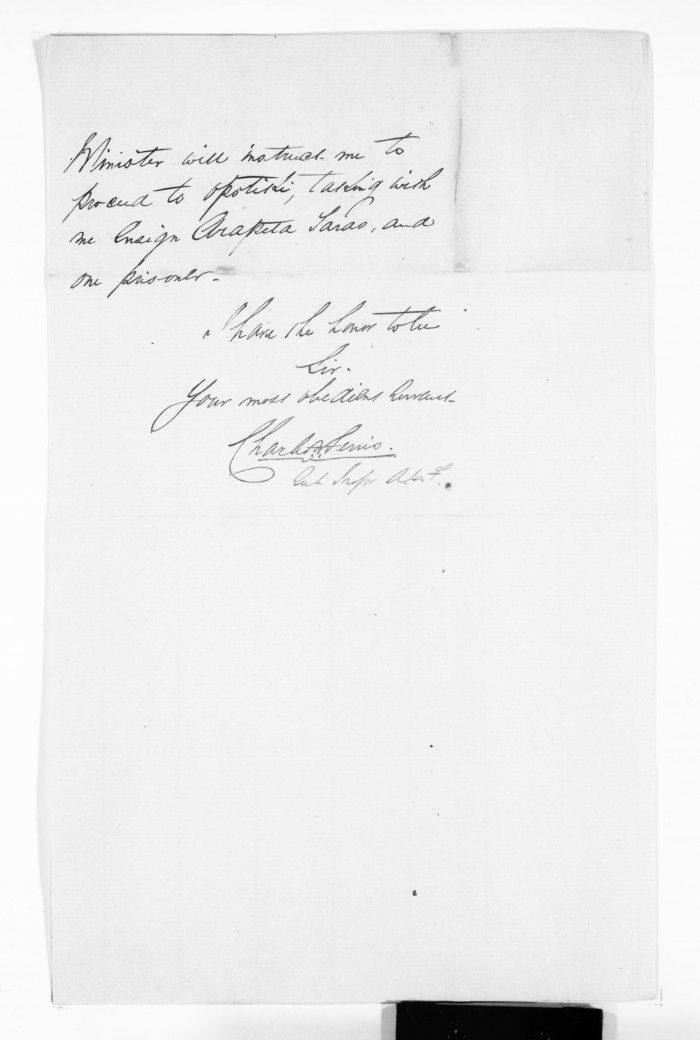 Minister will instruct me to
proceed to Opotiki, taking with
me Ensign Arapeta Tarao, and
one prisoner-
I have the honor to be
Sir.
Your most obedient Servant-
Charles
Sub Inspr